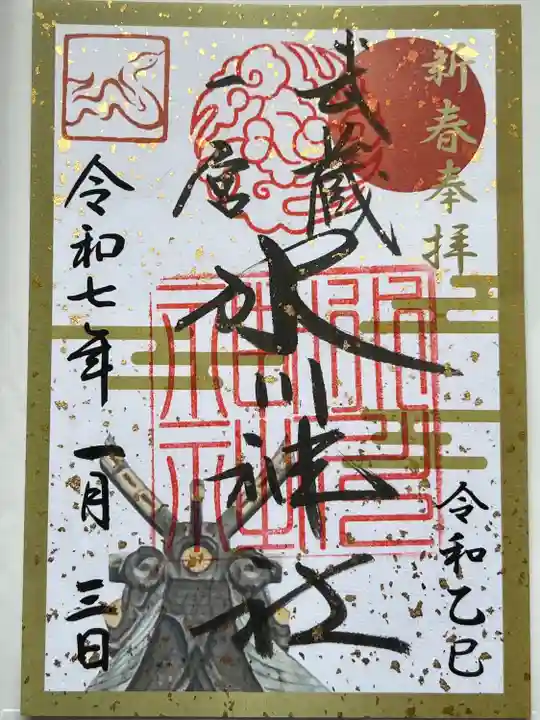 新春奉拝
令和乙巳
武蔵
一宮
氷川神社
令和七年一月三日